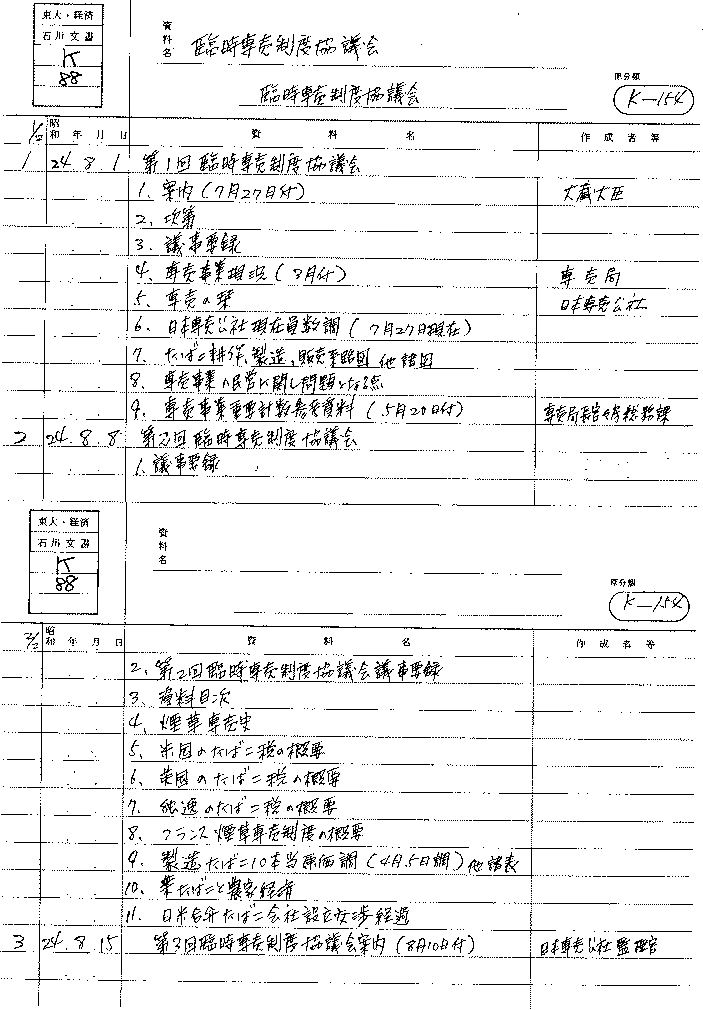 東大・経済
石川文書
K
88
資料名
臨時専売制度協議会
臨時専売制度協議会
原分類
K-154
1/2 昭和 年 月 日 資 料 名 作成者等
1 24. 8. 1 第1回臨時専売制度協議会
1. 案内(7月27日付) 大蔵大臣
2. 次第
3. 議事要録
4. 専売事業現況(8月付) 専売局
5. 専売の栞 日本専売公社
6. 日本専売公社現在員数調(7月27日現在)
7. たばこ耕作、製造、販売要略図 他諸図
8. 専売事業の民営に関し問題となる点
9. 専売事業重要計数参考資料(5月20日付) 専売局長官官房総務課
2 24. 8. 8 第2回臨時専売制度協議会
1. 議事要録
東大・経済
石川文書
K
88
資料名
原分類
K-154
2/2 昭和 年 月 日 資 料 名 作成名等
2. 第2回臨時専売制度協議会議事要録
3. 資料目次
4. 煙草専売史
5. 米国のたばこ税の概要
6. 英国のたばこ税の概要
7. 独逸のたばこ税の概要
8. フランス煙草専売制度の概要
9. 製造たばこ10本当原価調(4月5日調)他諸表
10. 葉たばこと農家経済
11. 日米合弁たばこ会社設立交渉経過
3 24. 8. 15 第3回臨時専売制度協議会案内(8月10日付) 日本専売公社監理官